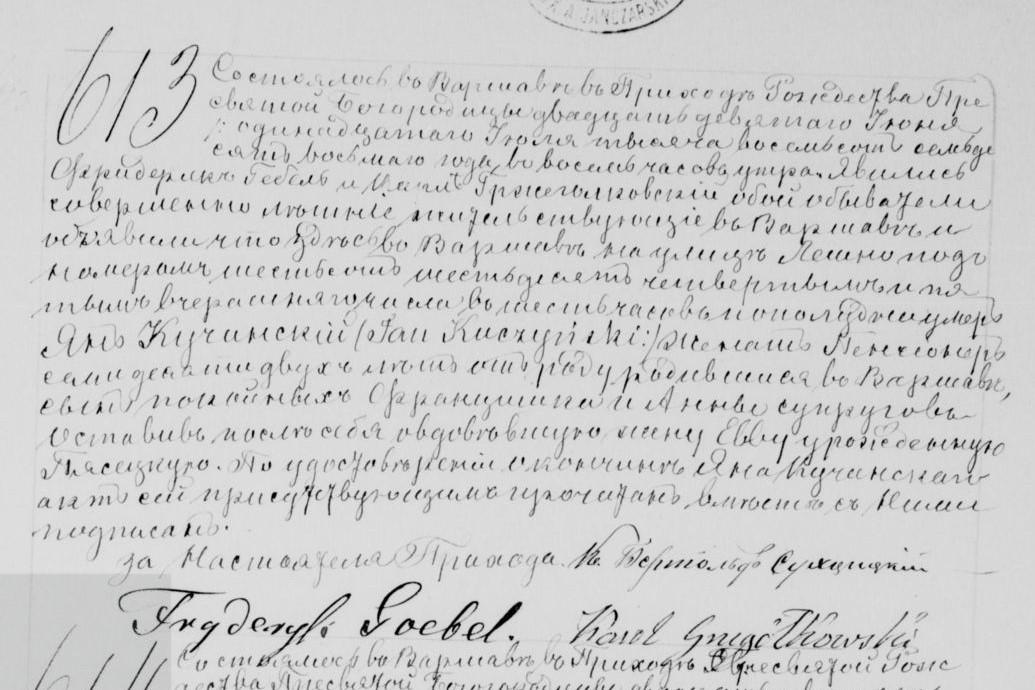 A. JANCZARSKI
613
Состоялось въ Варшавѣ въ Приходѣ Рождества Пре
святой Богородицы двадцать девятаго Іюня
/: одинадцатаго Іюля тысяча восемьсотъ семьде
сятъ восьмаго года, въ восемь часовъ утра. Явились
Фридерикъ Гебель и Карлъ Гржеголковскій обой обыватели
совершеннолѣтніе жительствующіе въ Варшавѣ и
объявили что здѣсь въ Варшавѣ на улицѣ Лешно подъ
номеромъ шестьсотъ шестьдесятъ четвертымъ и пя
тымъ вчерашняго числа въ шесть часовъ по полудни умеръ
Янъ Кучинскій /Jan Kuczyński:/ женатъ Пенсіонеръ
семидесяти двухъ лѣтъ отъ роду родившійся въ Варшавѣ,
сынъ покойныхъ Францишка и Анны супруговъ
Оставивъ послѣ себя овдовѣвшую жену Евву урожденную
Пясецкую. По удостовѣреніи о кончинѣ Яна Кучинскаго
актъ сей присутствующимъ прочитанъ вмѣстѣ съ Ними
подписанъ.
за Настоятеля Прихода Кс. Бертольдъ
Fryderyk Goebel. Karol
Состоялось въ Варшавѣ въ Приходѣ Рож
дества Пресвятой Богородицы